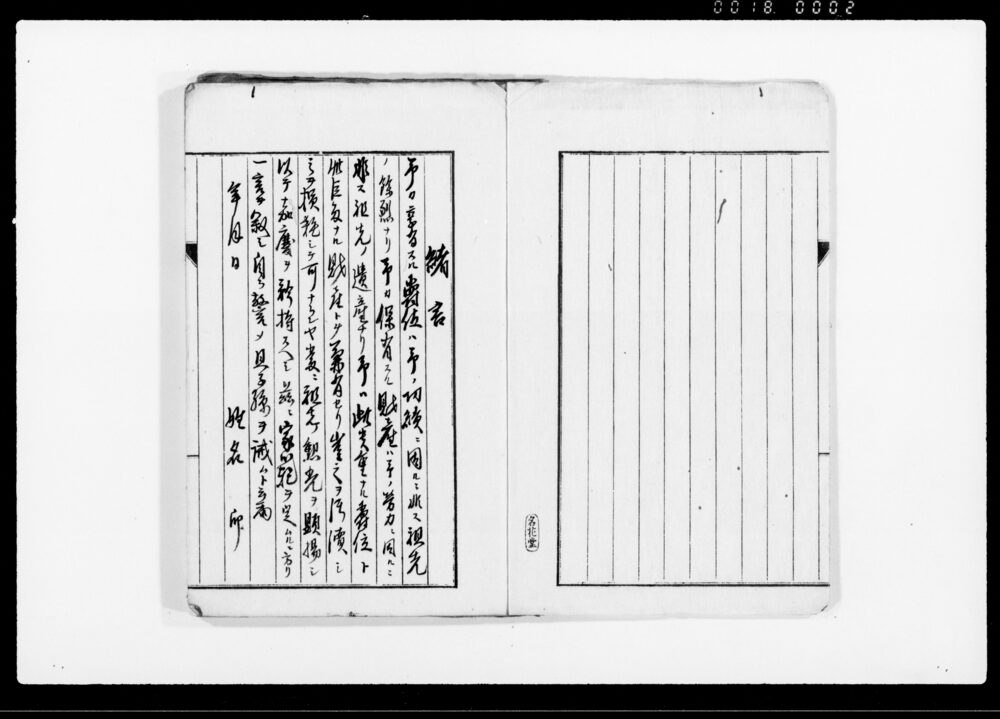 0018 0002
緒言
予カ享有スル爵位ハ予ノ功績ニ因ルニ非ス祖先
ノ餘烈ナリ予カ保有スル財產ハ予ノ労力ニ因ルニ
非ス祖先ノ遺產ナリ予ハ此貴重ナル爵位ト
此巨多ナル財產トヲ享有セリ豈之ヲ汚瀆シ
之ヲ損耗シテ可ナランヤ宜ニ祖先ノ勲光ヲ顕揚シ
以テ 慶ヲ 持スヘシ茲ニ家範ヲ定ムルニ方リ
一言ヲ叙シ自ラ警メ且子孫ヲ誡ムト云爾
年月日 姓名 印